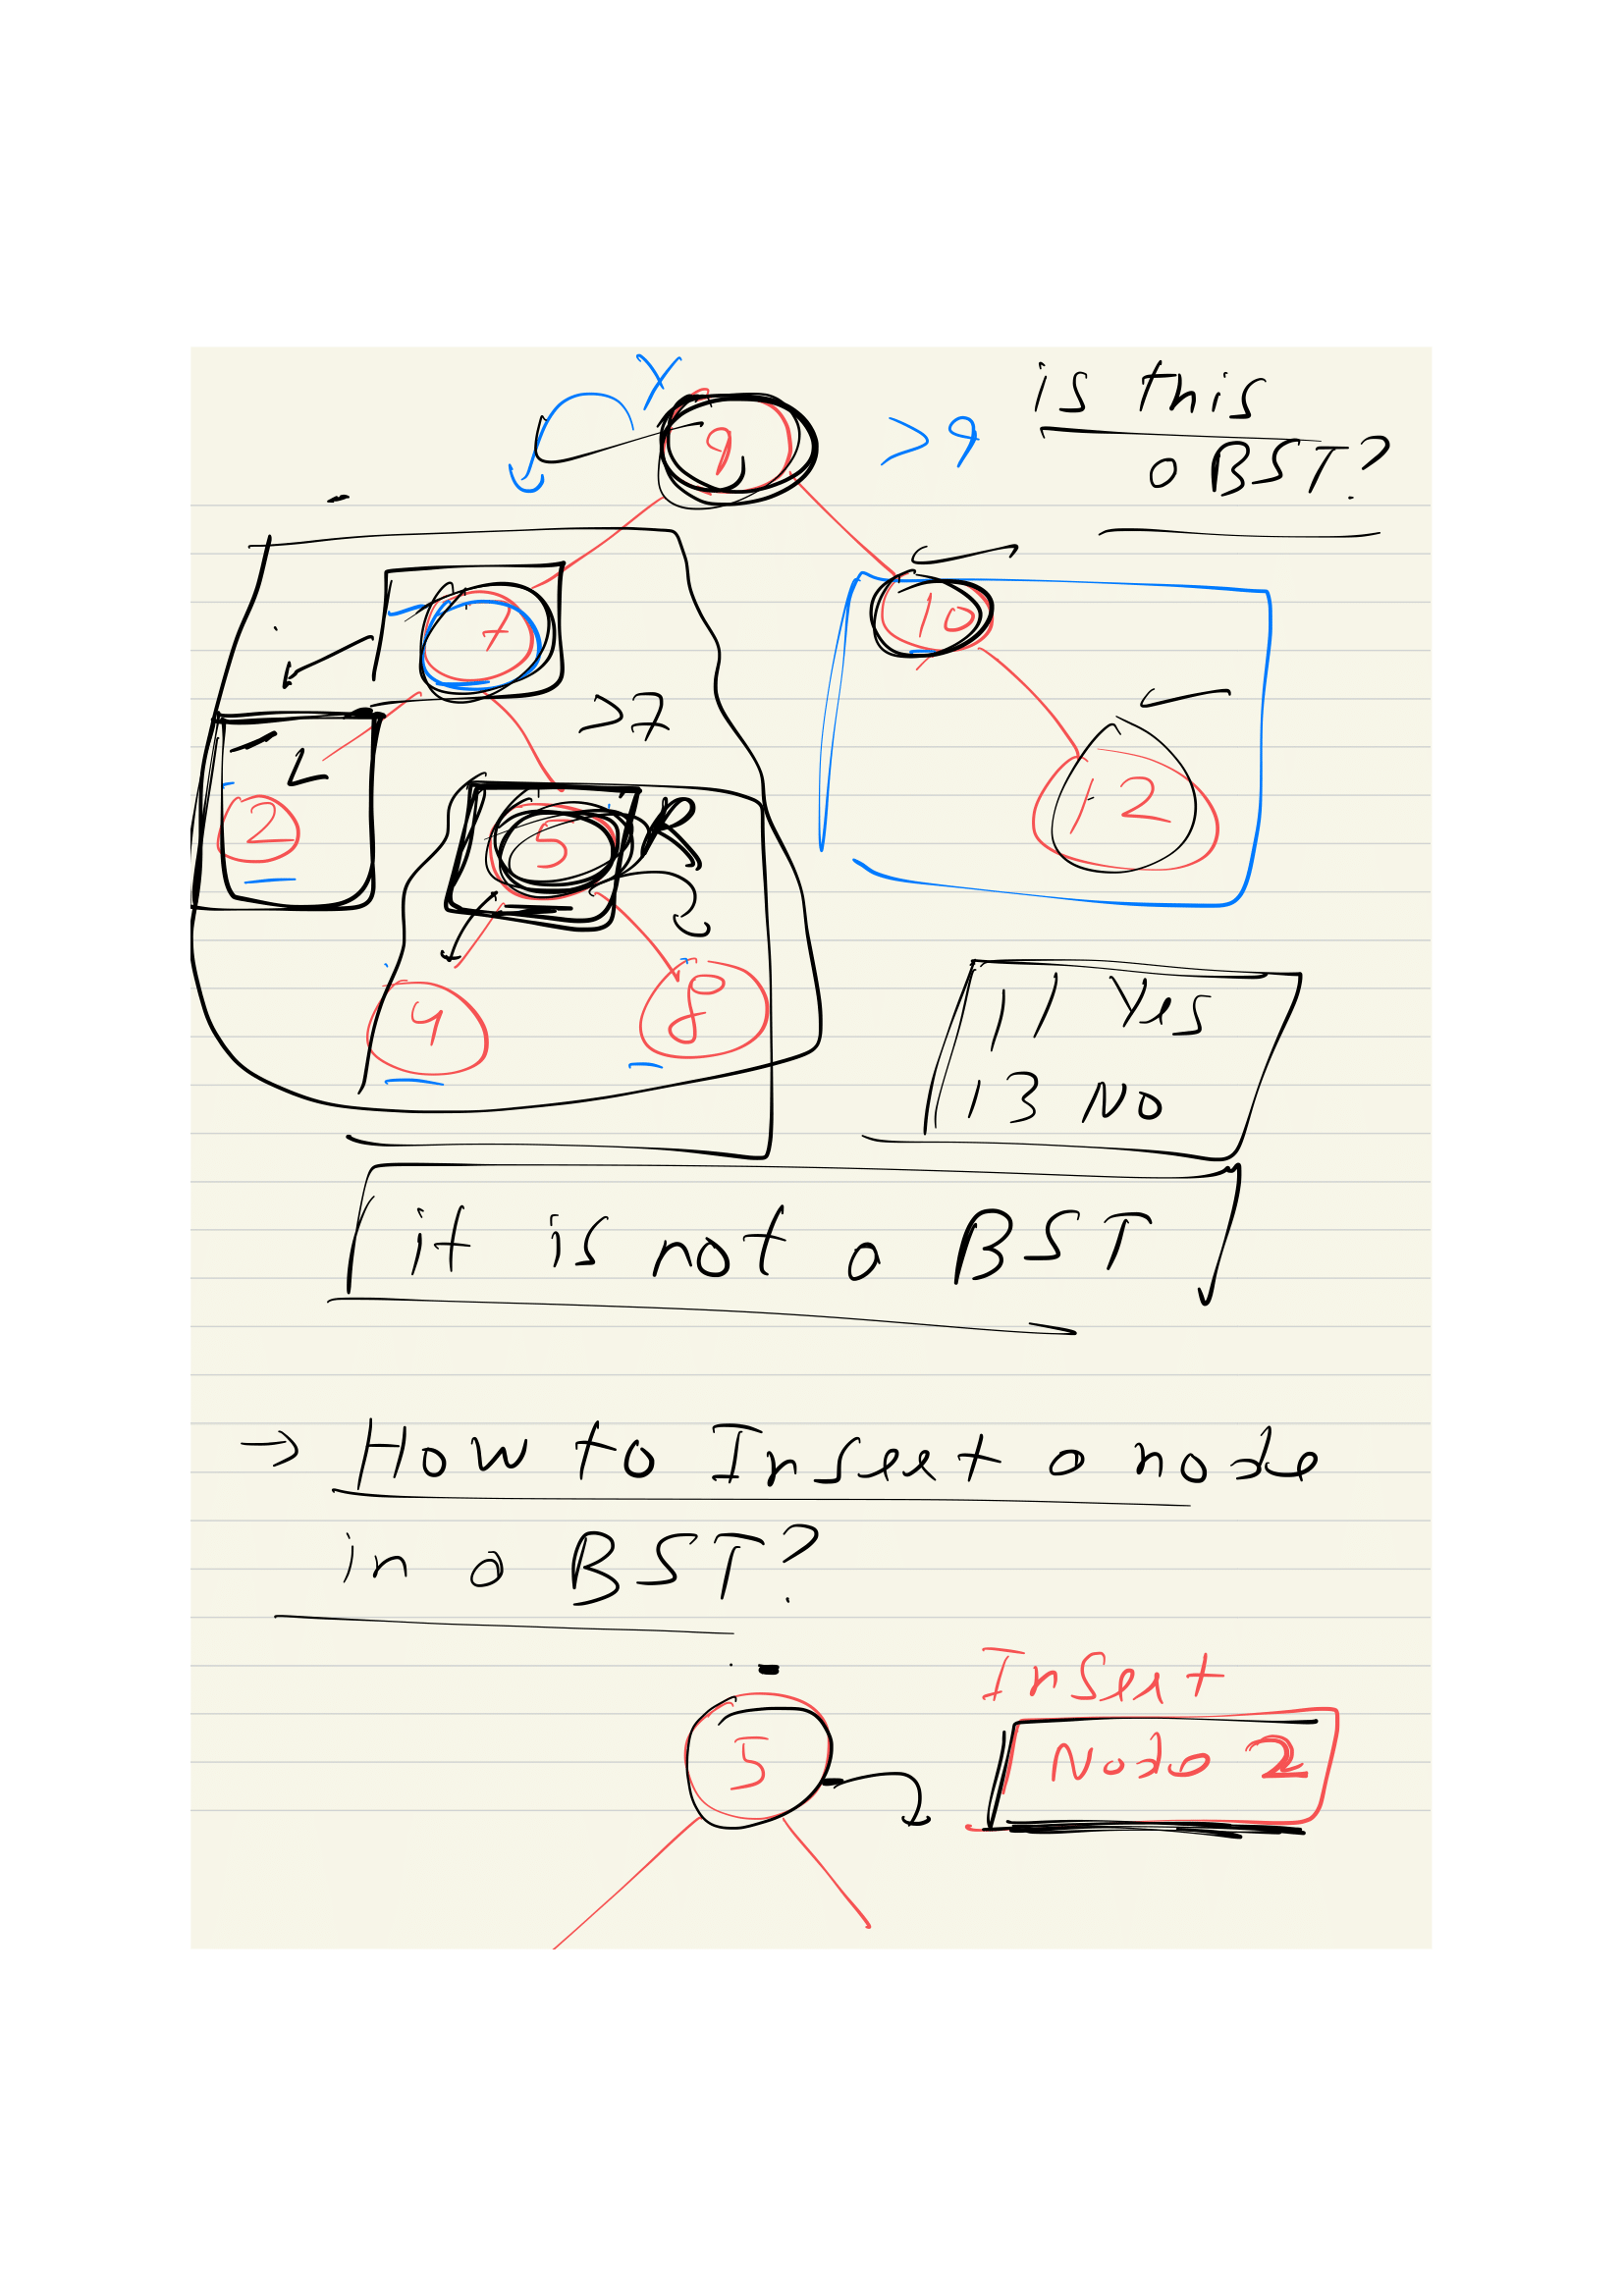 is this
a BST?
9
>9
7
10
>7
L
2
5
R
12
4
8
11 Yes
13 No
it is not a BST
→ How to Insert a node
in a BST?
Insert
5
Node 2